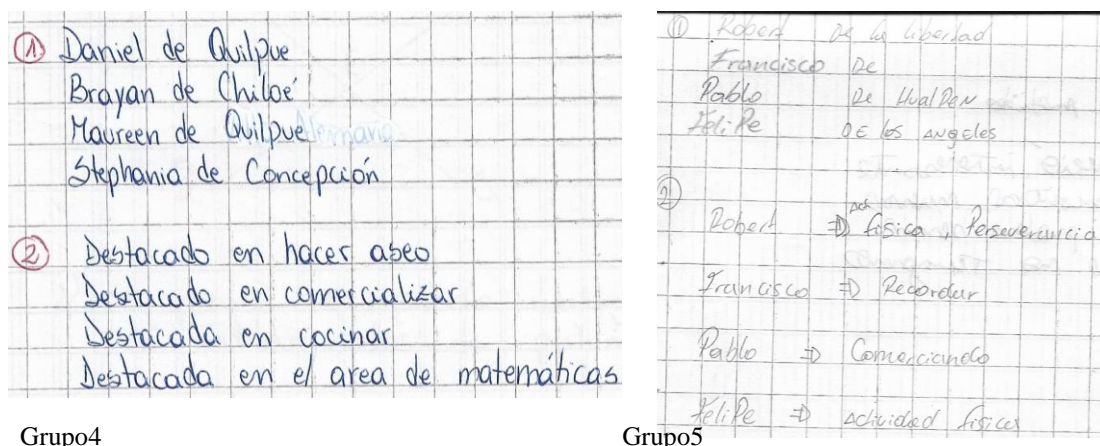 ① Daniel de Quilpue
Brayan de Chiloé
Maureen de Quilpue
Stephania de Concepción
② Destacado en hacer aseo
Destacado en comercializar
Destacada en cocinar
Destacada en el area de matemáticas
Grupo4
① Robert De la libertad
Francisco De
Pablo De HualPeN
FeliPe DE los ANgELes
②
Robert ⇒ Act física, Perseverancia
Francisco ⇒ Recordar
Pablo ⇒ Comerciando
FeliPe ⇒ Actividad física
Grupo5